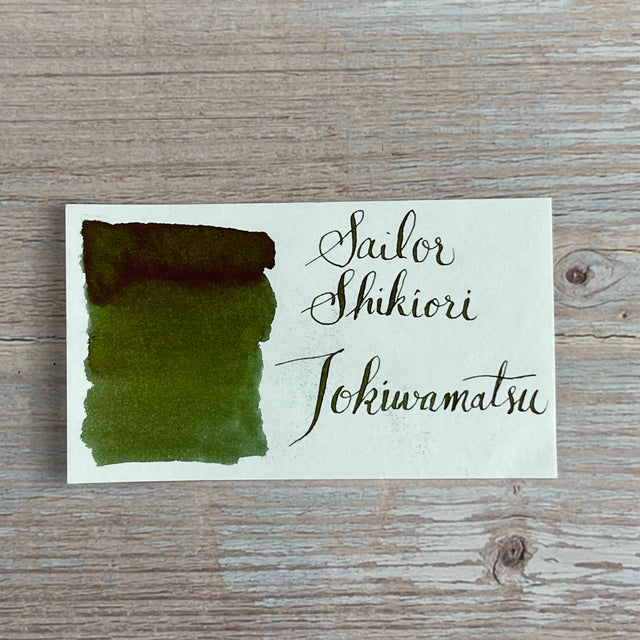 Sailor
Shikiori
Tokiwamatsu